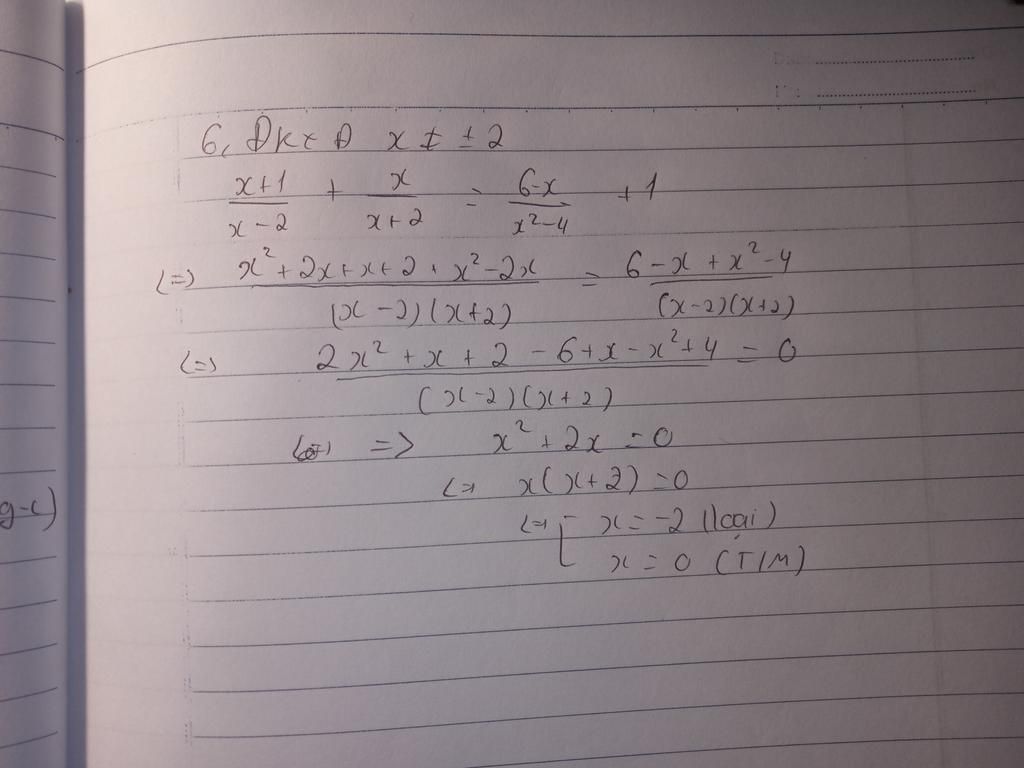 6, ĐKXĐ x ≠ ± 2
x+1/x-2 + x/x+2 = 6-x/x²-4 + 1
<=> x²+2x+x+2+x²-2x/(x-2)(x+2) = 6-x+x²-4/(x-2)(x+2)
<=> 2x²+x+2-6+x-x²+4/(x-2)(x+2) = 0
=> x²+2x=0
<=> x(x+2)=0
<=> [ x=-2 (loại)
x=0 (T/M)
g-c)